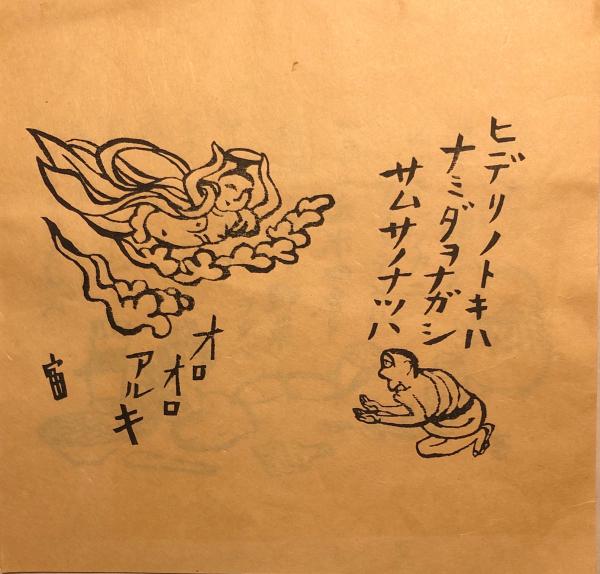 ヒデリノトキハ
ナミダヲナガシ
サムサノナツハ
オロ
オロ
アルキ
宙